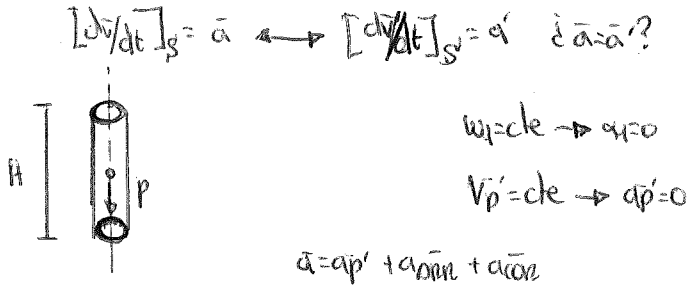 [dv̄/dt]_S = ā ⟷ [dv̄/dt]_S' = a' ¿ ā=ā'?
H
P
ω1=cte → α1=0
V̄p'=cte → āp'=0
ā=āp' + āarr + ācor